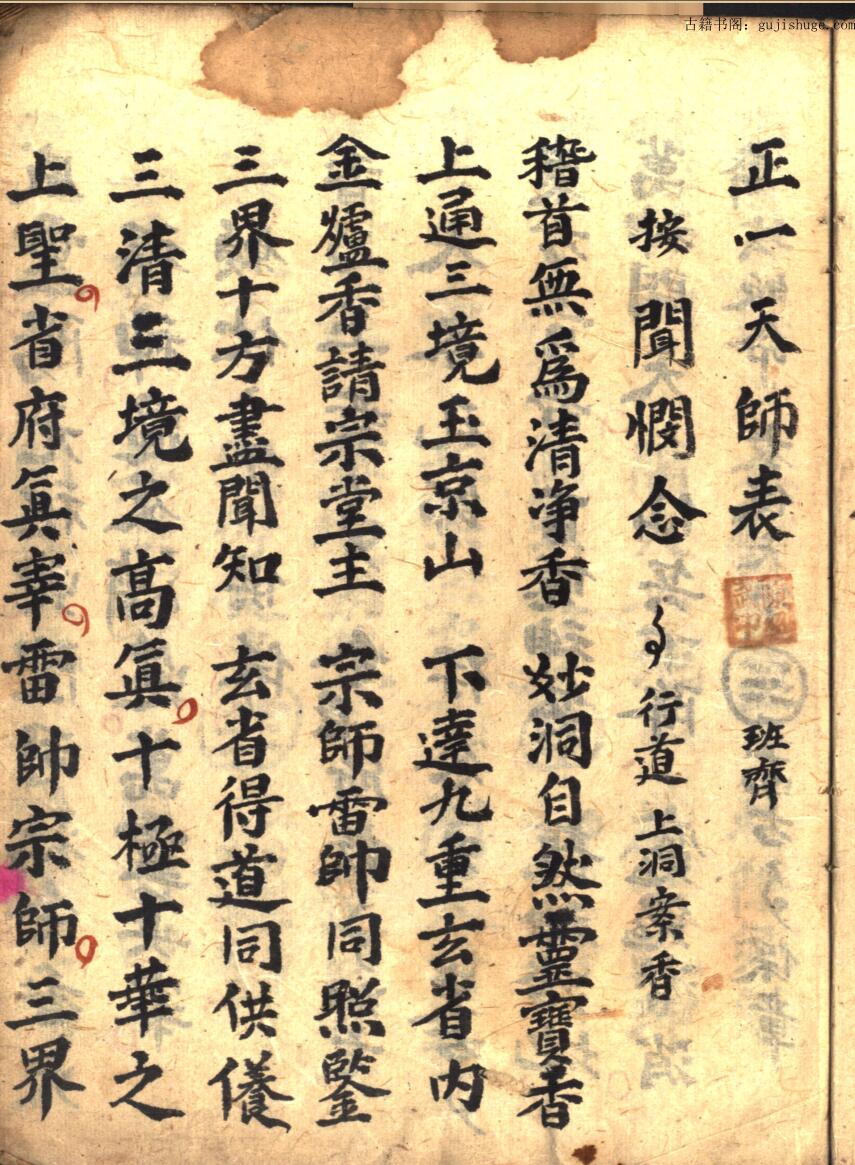 古籍书阁：gujishuge.com
正一天師表 班齊
按聞憫念 行道 上洞案香
稽首無爲清净香 妙洞自然靈寶香
上通三境玉京山 下達九重玄省內
金爐香請宗堂主 宗師雷帥同照鑒
三界十方盡聞知 玄省得道同供養
三清三境之高眞十極十華之
上聖省府眞宰雷帥宗師三界